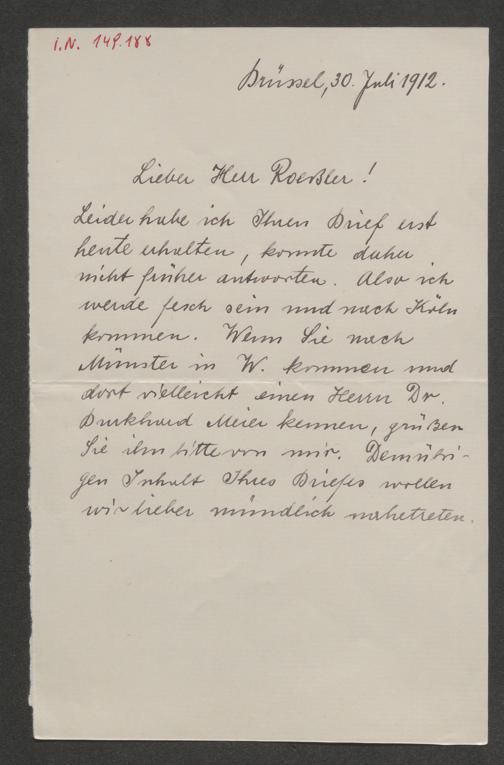 I.N. 149.188
Brüssel, 30. Juli 1912.
Lieber Herr Roeßler!
Leider habe ich Ihren Brief erst
heute erhalten, konnte daher
nicht früher antworten. Also ich
werde fesch sein und nach Köln
kommen. Wenn Sie nach
Münster in W. kommen und
dort vielleicht einen Herrn Dr.
Burkhard Meier kennen, grüßen
Sie ihn bitte von mir. Demübri-
gen Inhalt Ihres Briefes wollen
wir lieber mündlich nahetreten.